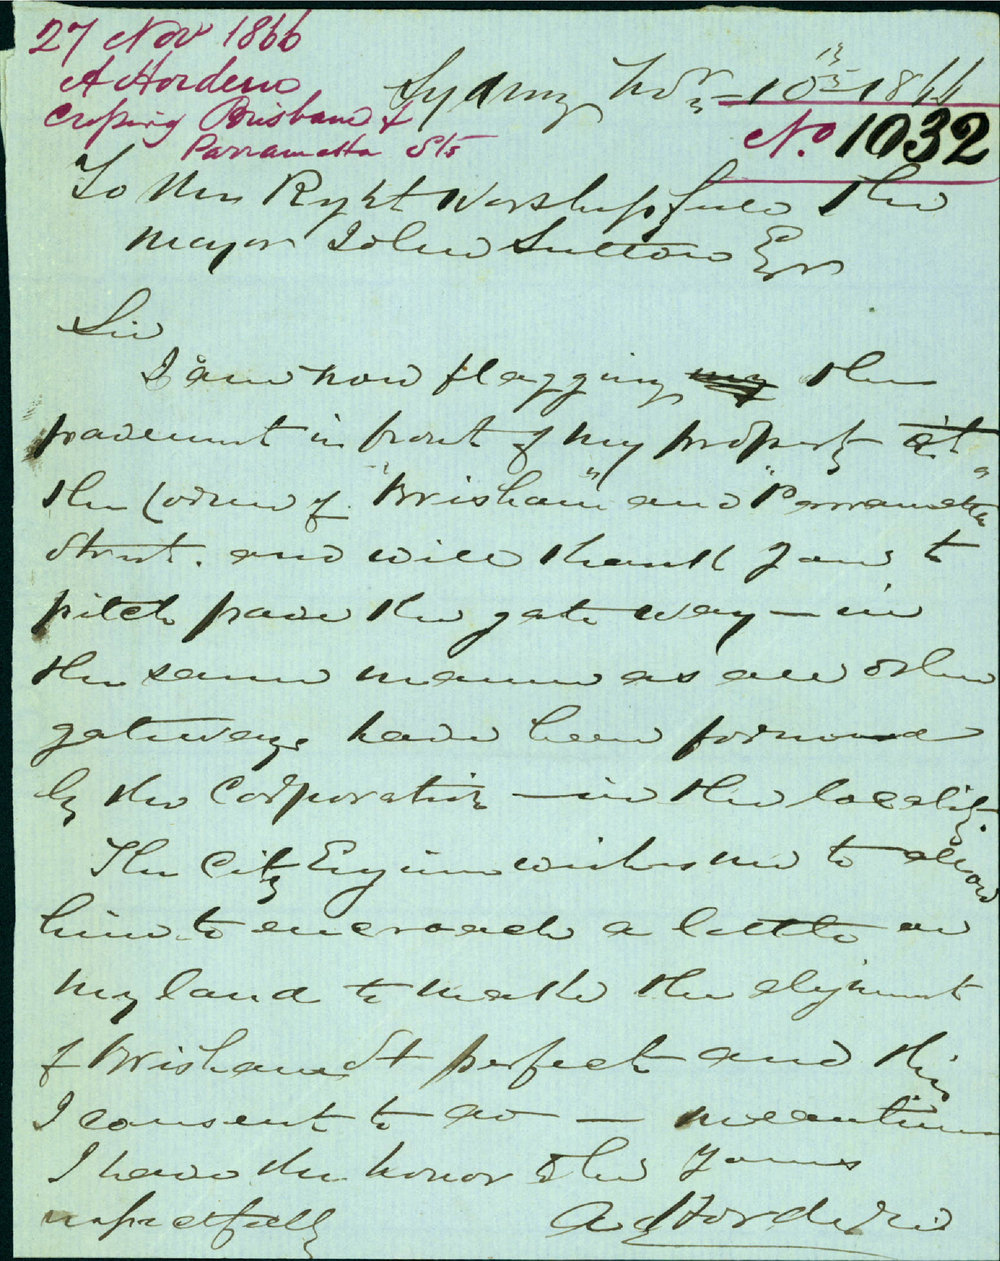 27 Nov 1866
A Hordern
Crossing Brisbane &
Parramatta Sts
Sydney Nov 10th 1866
No. 1032
To the Right Worshipfull The
Mayor John Sutton Esqr
Sir
I am now flagging my the
pavement in front of my property at
the Corner of "Brisbane" and "Parramatta"
Street. and will thank you to
pitch pave the gate way — in
the same manner as all other
gateways have been formed
by the Corporation — in the locality.
The City Engineer wishes me to allow
him to encroach a little on
my land to make the alignment
of Brisbane St perfect and this
I consent to do — meantime
I have the honor to be yours
respectfully
A Hordern